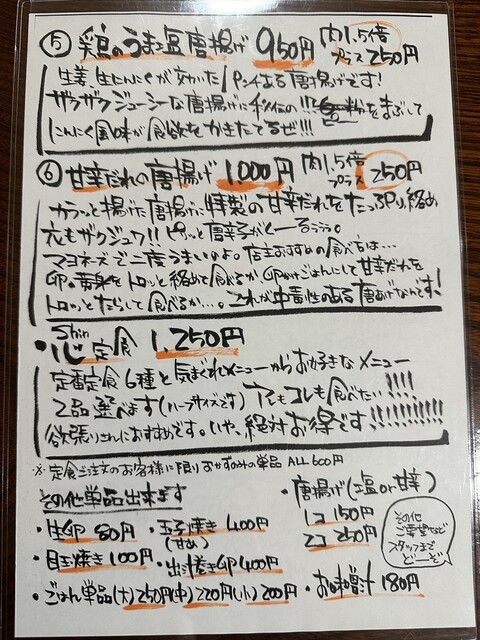 ⑤ 鶏のうま塩唐揚げ 950円 肉1.5倍 プラス250円
生姜、生にんにくが効いたパンチある唐揚げです!
ザクザクジューシーな唐揚げに秘伝の 粉をまぶして
にんにく風味が食欲をかきたてるぜ!!!
⑥ 甘辛だれの唐揚げ 1.000円 肉1.5倍 プラス250円
カラッと揚げた唐揚げに特製の甘辛だれをたっぷり絡め
衣もザクジュワ!!ピリッと唐辛子がくーるぅぅぅ。
マヨネーズで二度うまいのよ。店主おすすめの食べ方は…
卵の黄身をトロッと絡めて食べるか、卵かけごはんにして甘辛だれを
トロッとたらして食べるか…。これが中毒性のある唐あげなんです!
Shin
・心定食 1.250円
定番定食6種と気まぐれメニューからお好きなメニュー
2品選べます(ハーフサイズです)アレもコレも食べたい!!!!
欲張りさんにおすすめです。いや、絶対お得です!!!!!!!!!!
※定食ご注文のお客様に限りおかずのみの単品 ALL600円
その他単品出来ます
・生卵 80円
・玉子焼き 400円
(甘め)
・目玉焼き 100円
・出汁巻き卵 400円
・ごはん単品(大)250円(中)220円(小)200円
・唐揚げ(塩or甘辛)
1コ 150円
2コ 250円
・お味噌汁 180円
その他
ご要望など
スタッフまで
どーぞ